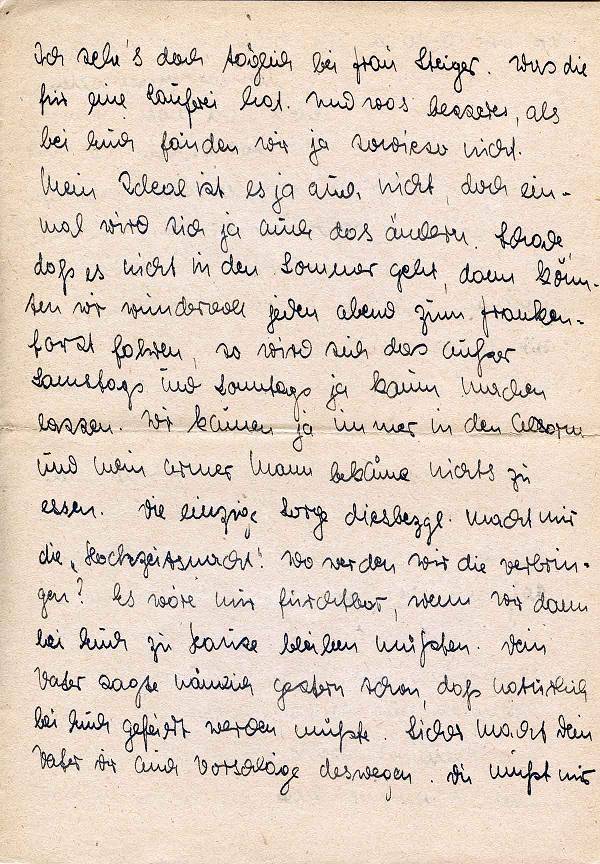 Ich seh's doch täglich bei Frau Steiger. Was die
für eine Lauferei hat. Und was besseres, als
bei Euch fänden wir ja sowieso nicht.
Mein Ideal ist es ja auch nicht, doch ein-
mal wird sich ja auch das ändern. Schade,
daß es nicht in den Sommer geht, dann könn-
ten wir wundervoll jeden abend zum Franken-
forst fahren, so wird sich das außer
Samstags und Sonntags ja kaum machen
lassen. Wir kämen ja immer in den Alarm
und mein armer Mann bekäme nichts zu
essen. Die einzige Sorge diesbezgl. macht mir
die „Hochzeitsnacht". Wo werden wir die verbrin-
gen? Es wäre mir furchtbar, wenn wir dann
bei Euch zu Hause bleiben müßten. Dein
Vater sagte nämlich gestern schon, daß natürlich
bei Euch gefeiert werden müßte. Sicher macht Dein
Vater dir auch Vorschläge deswegen. Du mußt mir